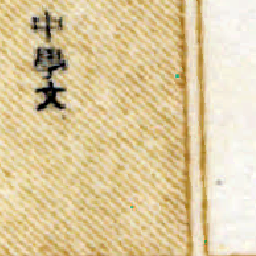 中學文